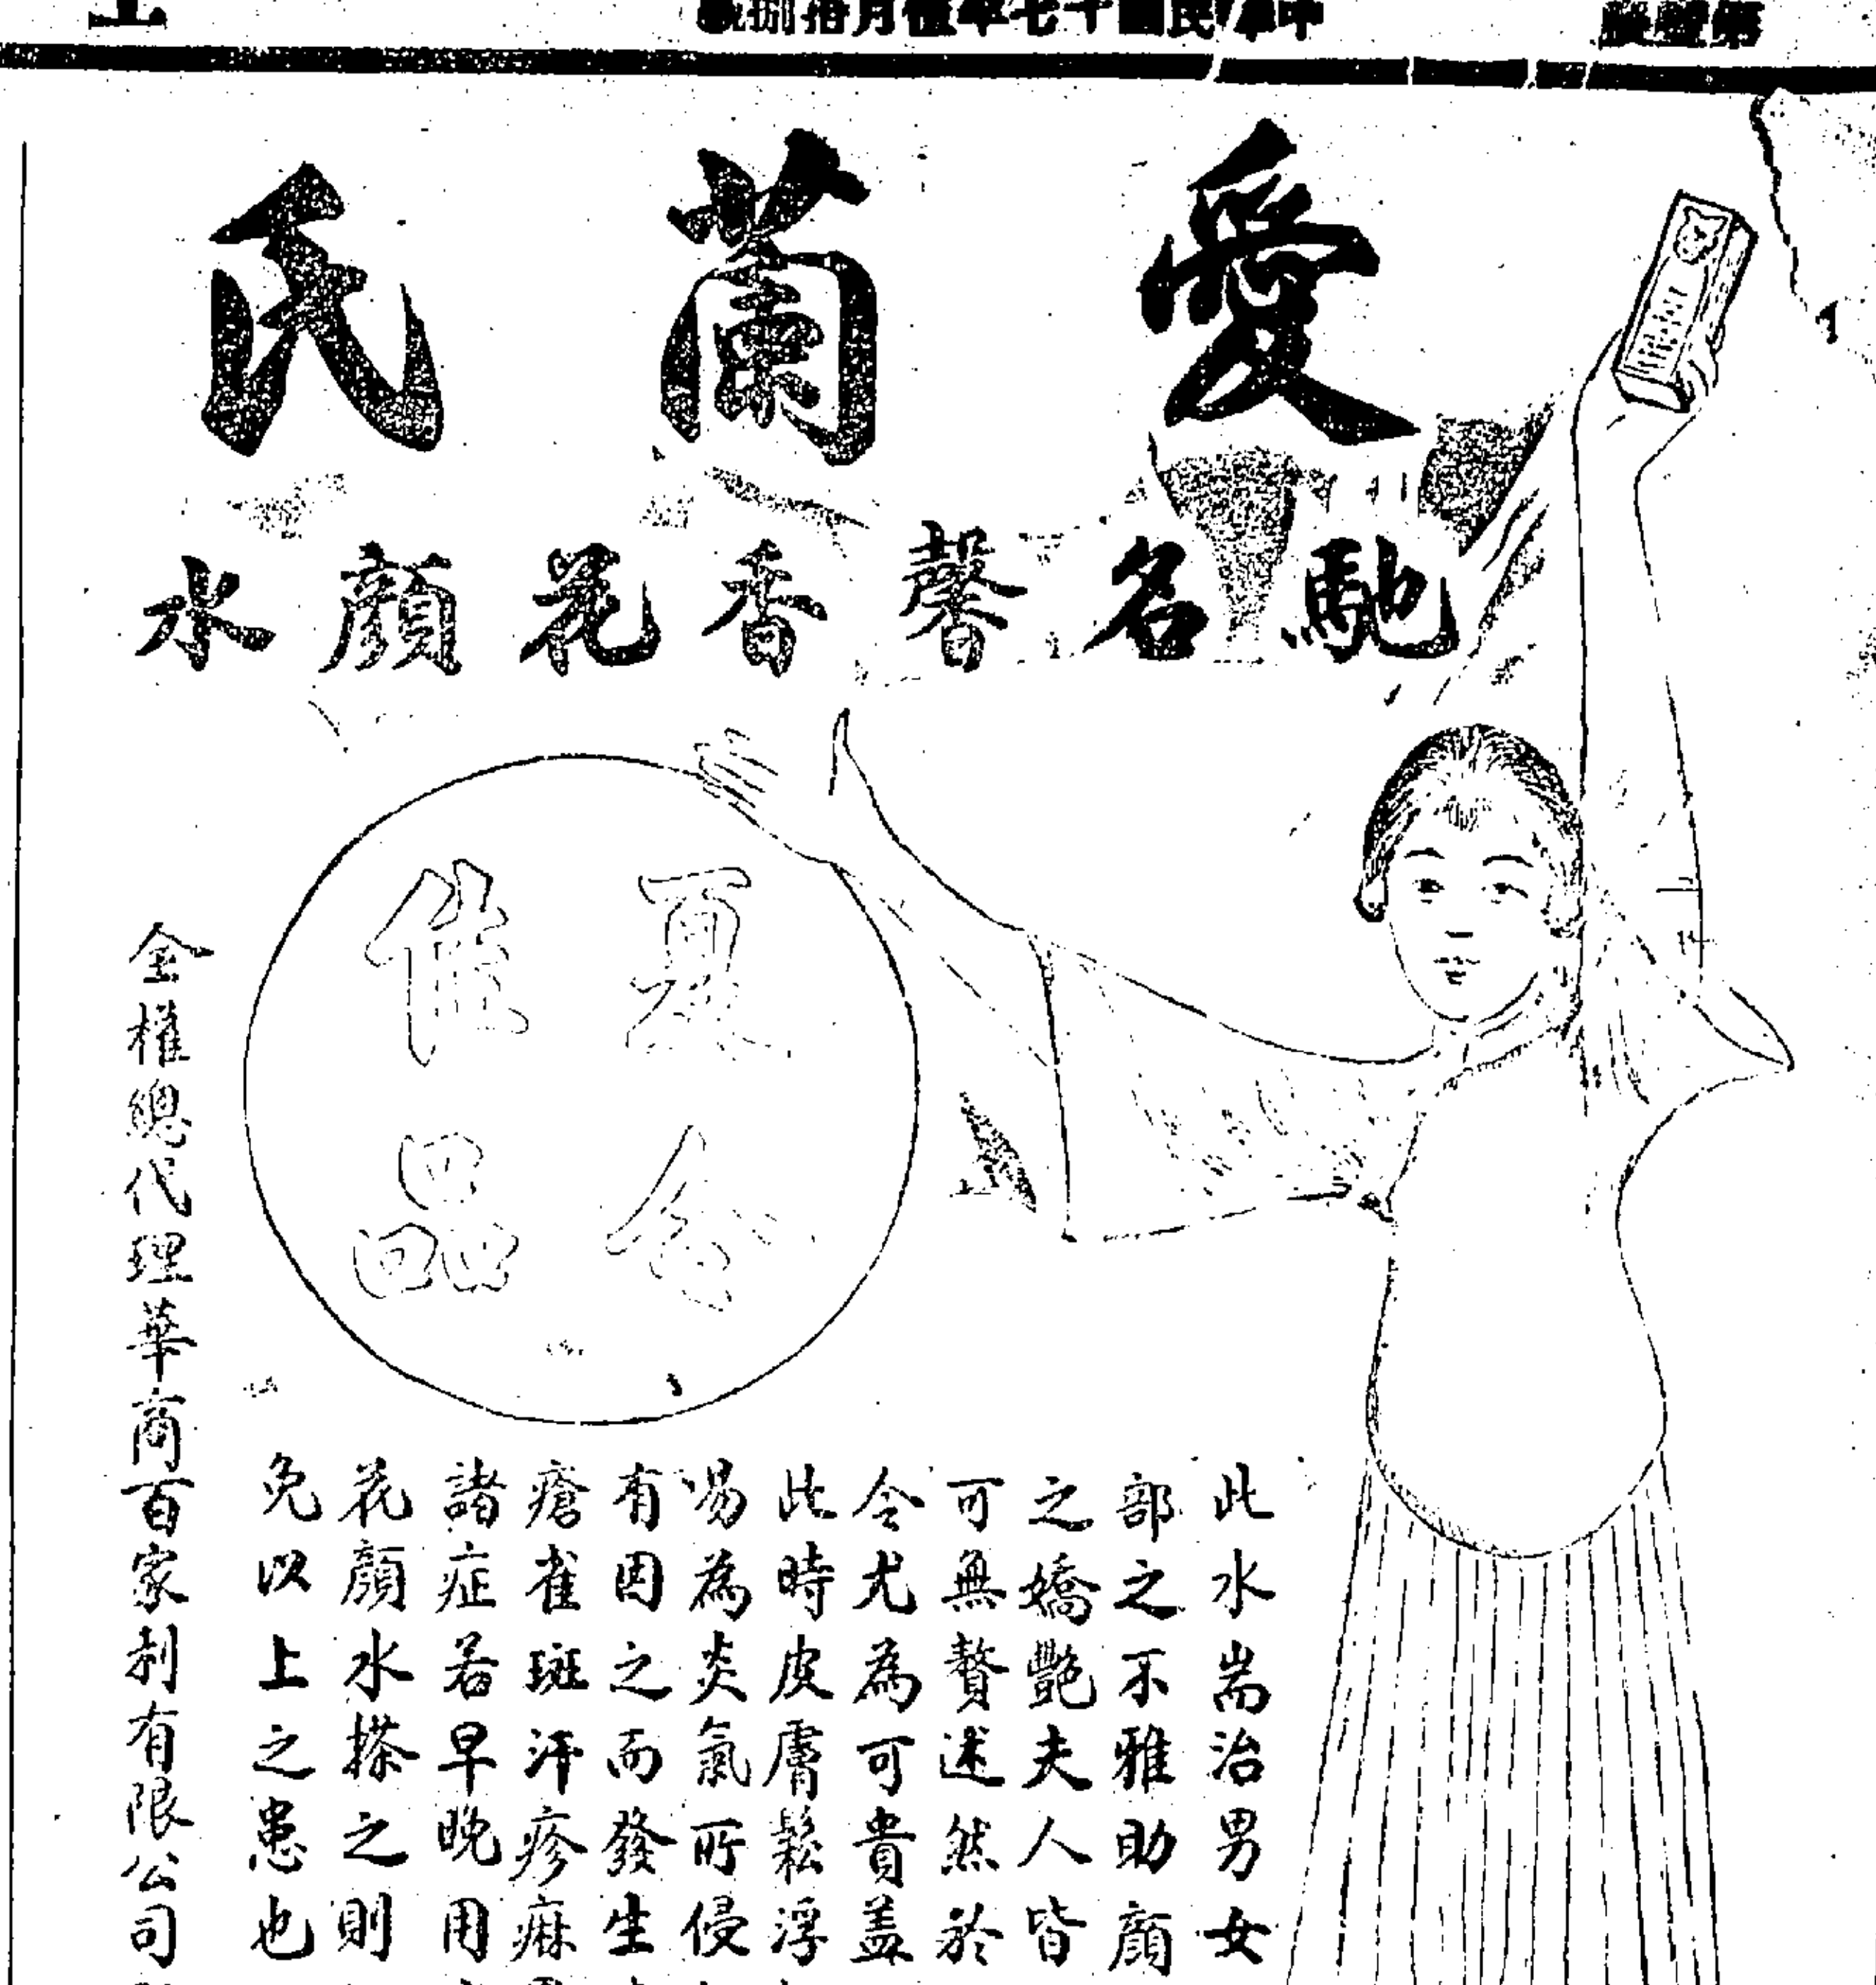 中華民國十七年伍月拾捌號
愛蘭氏
馳名馨香花顏水
夏令
佳品
此水耑治男女
部之不雅助顏
之嬌艷夫人皆
可無贅述然於
令尤為可貴蓋
此時皮膚鬆浮
易為炎氣所侵
有因之而發生
瘡雀斑汗疹痲
諸症若早晚用
花顏水搽之則
免以上之患也
全權總代理華商百家利有限公司